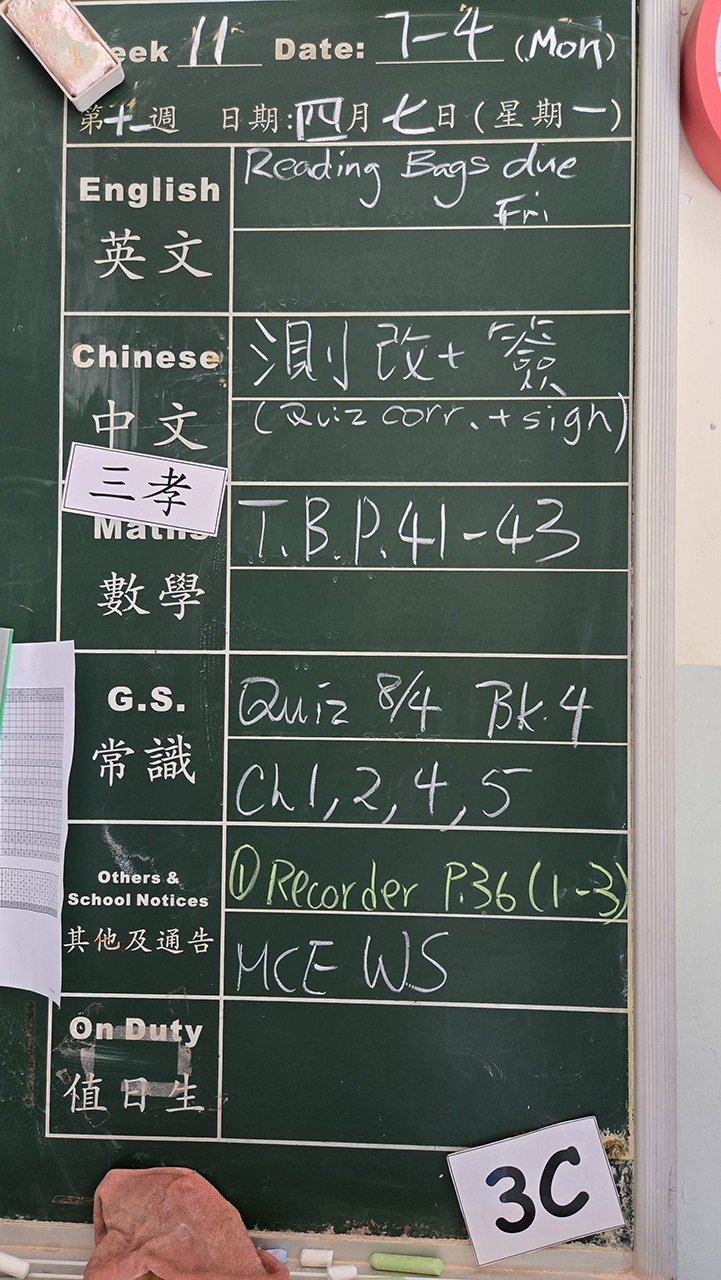 eek 11 Date: 7-4 (Mon)
第十一週 日期:四月七日(星期一)
English
英文
Reading Bags due
Fri
Chinese
中文
測改+簽
(Quiz corr. + sign)
三孝
Maths
數學
T.B.P.41-43
G.S.
常識
Quiz 8/4 Bk.4
Ch1,2,4,5
Others &
School Notices
其他及通告
① Recorder P.36(1-3)
MCE WS
On Duty
值日生
3C